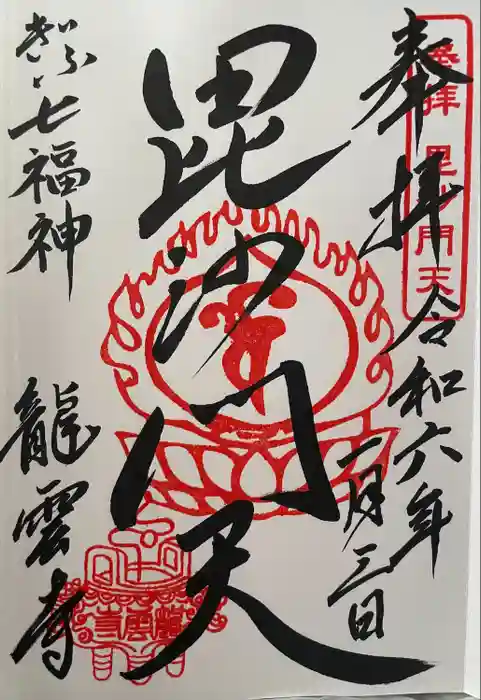 奉拝 令和六年
一月三日
奉拝 毘沙門天
毘沙門天
ぎふ七福神
龍雲寺
龍雲寺